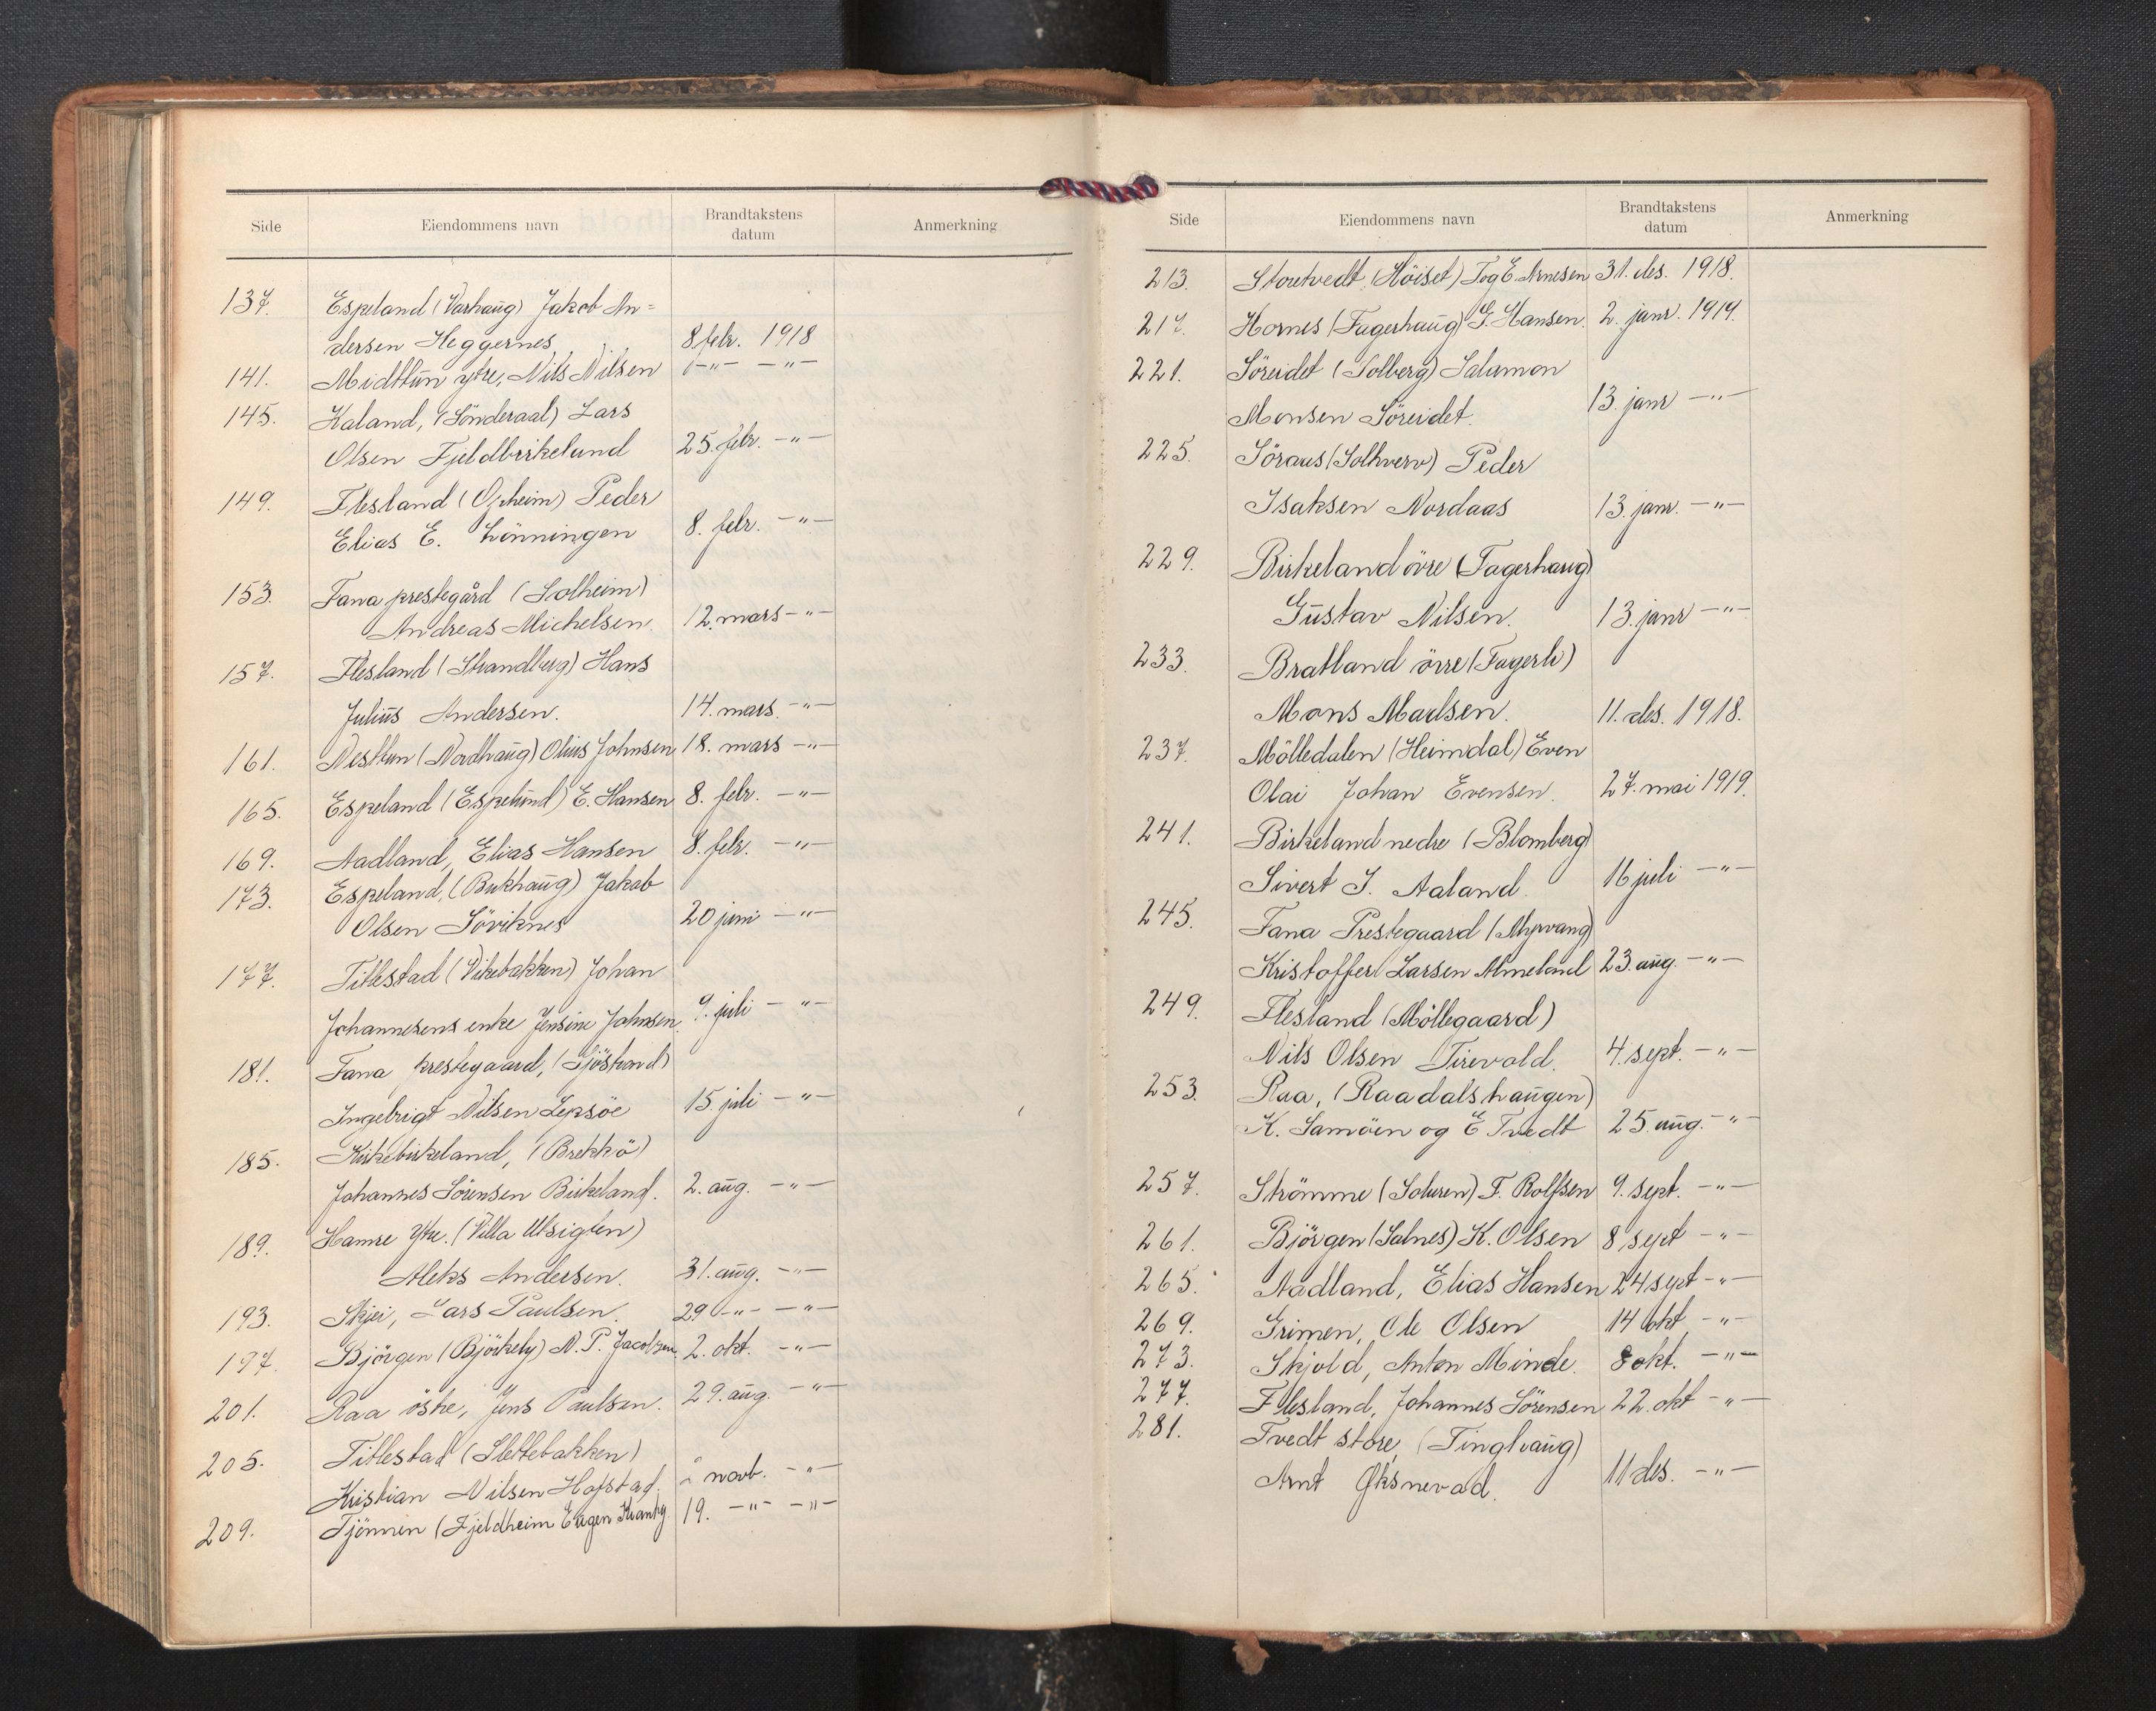 Side Eiendommens navn Brandtakstens datum Anmerkning
137. Espeland (Varhaug) Jakob An=
dersen Heggernes 8 febr. 1918
141. Midttun ytre, Nils Nilsen -"- -"-
145. Kaland, (Sönderaal) Lars
Olsen Fjeldbirkeland 25. febr. -"-
149. Flesland (Opheim) Peder
Elias E. Lönningen 8. febr. -"-
153. Fana prestegård (Solheim)
Andreas Michelsen. 12. mars -"-
157. Flesland (Strandberg) Hans
Julius Andersen. 14. mars. -"-
161. Nesttun (Nordhaug) Olius Johnsen 18. mars -"-
165. Espeland (Espelund) E. Hansen 8. febr. -"-
169. Aadland, Elias Hansen 8. febr. -"-
173. Espeland, (Bukhaug) Jakob
Olsen Söviknes 20 juni -"-
177. Titlestad (Vikebakken) Johan
Johannesens enke Jensine Johnsen. 9. juli -"-
181. Fana prestegaard, (Sjöstrand)
Ingebrigt Nilsen Lepsöe 15. juli -"-
185. Kirkebirkeland, (Brekkö)
Johannes Sörensen Birkeland. 2. aug. -"-
189. Hamre Ytre. (Villa Utsigten)
Aleks Andersen. 31. aug. -"-
193. Skjei, Lars Paulsen. 29 -"- -"-
197. Björgen (Björkely) N. P. Jacobsen 2. okt. -"-
201. Raa östre, Jens Paulsen. 29. aug. -"-
205. Titlestad (Slettebakken)
Kristian Nilsen Hofstad. novb. -"-
209. Tjönnin (Fjeldheim Eugen 19. -"- -"-
Side Eiendommens navn Brandtakstens datum Anmerkning
213. Storetvedt, (Höiset) Tog E. Arnesen 31. des. 1918.
217. Hornes (Fagerhaug) G. Hansen. 2. janr. 1919.
221. Söreidet (Solberg) Salamon
Monsen Söreidet. 13. janr -"-
225. Söraas (Solhverv) Peder
Isaksen Nordaas 13. janr. -"-
229. Birkeland övre (Fagerhaug)
Gustav Nilsen. 13. janr -"-
233. Bratland övre (Fagerli)
Mons Madsen. 11. des. 1918.
237. Mölledalen (Heimdal) Even
Olai Johan Evensen. 27. mai 1919.
241. Birkeland nedre (Blomberg)
Sivert J. Aaland. 16 juli -"-
245. Fana Prestegaard (Myrvang)
Kristoffer Larsen Almeland 23. aug. -"-
249. Flesland (Möllegaard)
Nils Olsen Tirevold. 4. sept. -"-
253. Raa, (Raadalshaugen)
K. Samöen og E Tvedt 25. aug. -"-
257. Strömme (Soluren) T. Rolfsen 9. sept. -"-
261. Björgen (Solnes) K. Olsen 8 sept -"-
265. Aadland, Elias Hansen 24 sept -"-
269. Grimen, Ole Olsen 14 okt -"-
273. Skjold, Anton Minde. 8 okt. -"-
277. Flesland, Johannes Sörensen 22. okt -"-
281. Tvedt store, (Tinghaug)
Arnt Øksnevad. 11 des. -"-